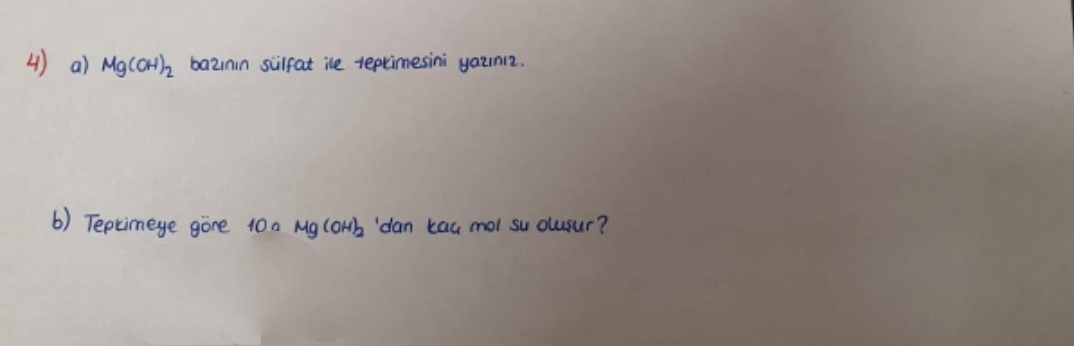 4) a) Mg(OH)₂ bazının sülfat ile tepkimesini yazınız.
b) Tepkimeye göre Mg(OH)₂ 'dan kaç mol su oluşur?